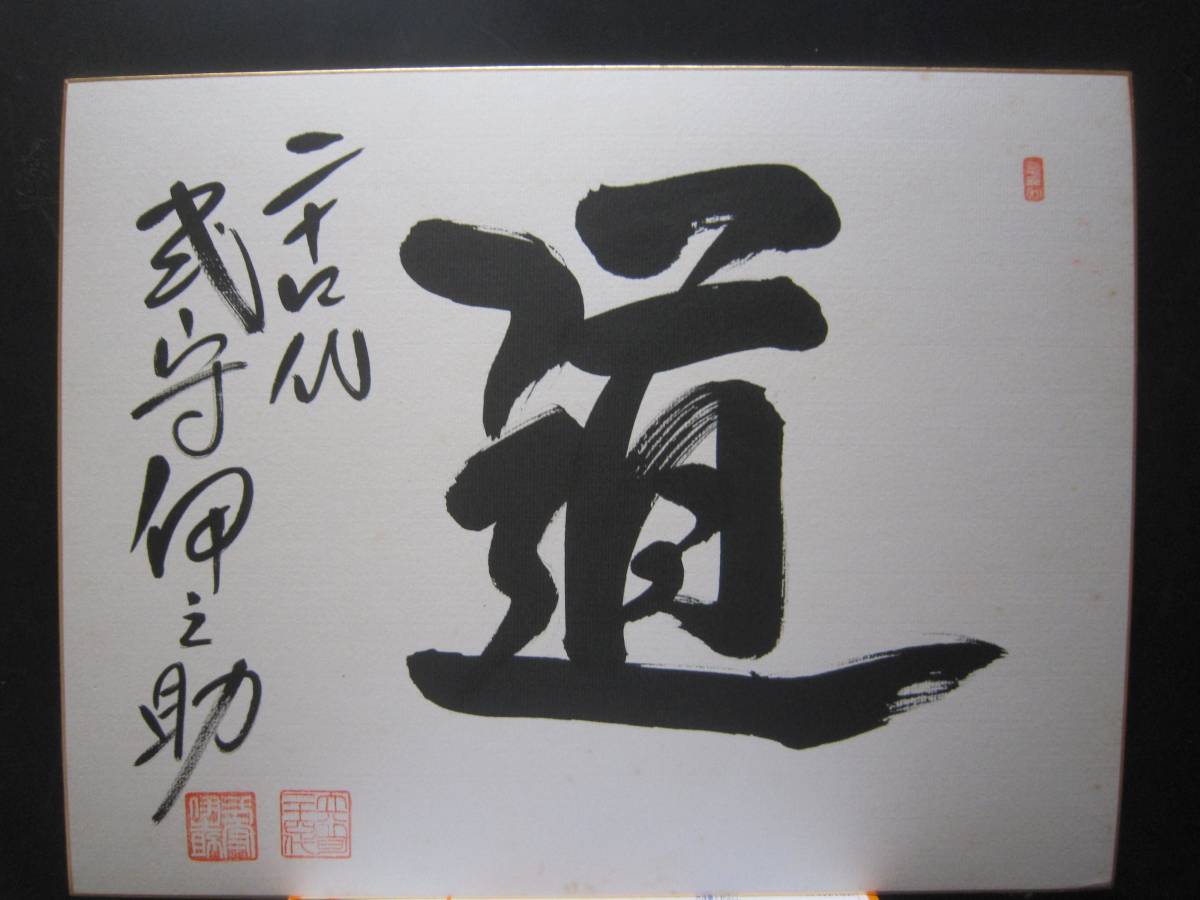 道
二十四代
式守伊之助